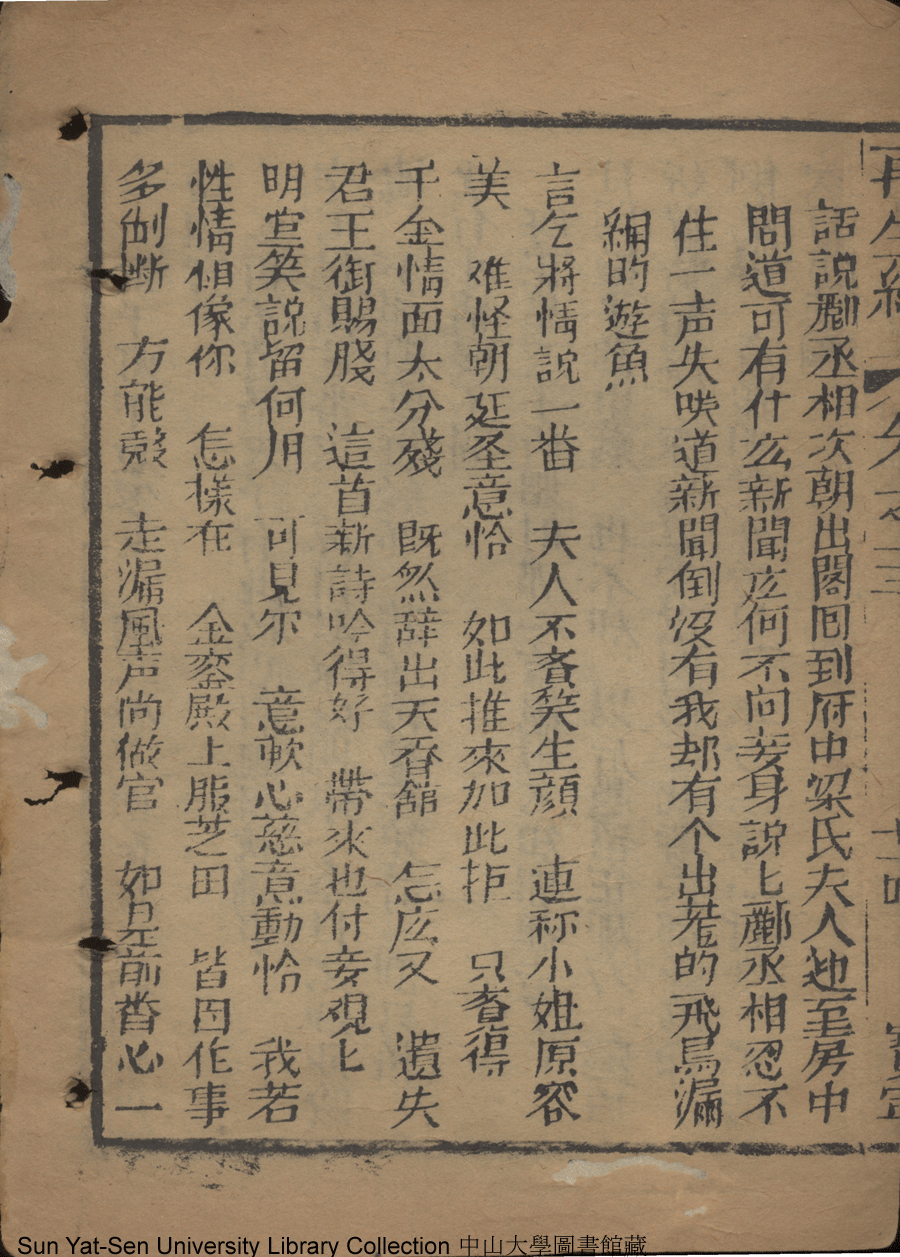 再生緣 分之三
話說酈丞相次朝出閣囘到府中梁氏夫人迎至房中
問道可有什么新聞庅何不向妾身說匕酈丞相忍不
住一声失唉道新聞倒没有我却有个出茏的飛鳥漏
網的遊魚
言乞將情說一番 夫人不覔笑生顔 連称小姐原容
美 难怪朝廷圣意恰 如此推來加此拒 只覔得
千金情面太分殘 既然辞出天香館 怎庅又 遺失
君王御賜牋 這首新詩吟得好 帶來也付妾視匕
明堂笑說留何用 可見尔 意軟心慈意動怜 我若
性情相像你 怎樣在 金銮殿上服芝田 皆因作事
多剖断 方能彀 走漏風声尚做官 如是前番心一
Sun Yat-Sen University Library Collection 中山大學圖書館藏